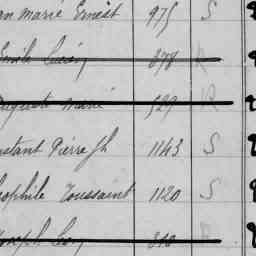 an Marie Ernest 975 S
Emile 878 R
Auguste Marie 529 R
nstant Pierre Jh 1143 S
éophile Toussaint 1120 S
Joseph 310